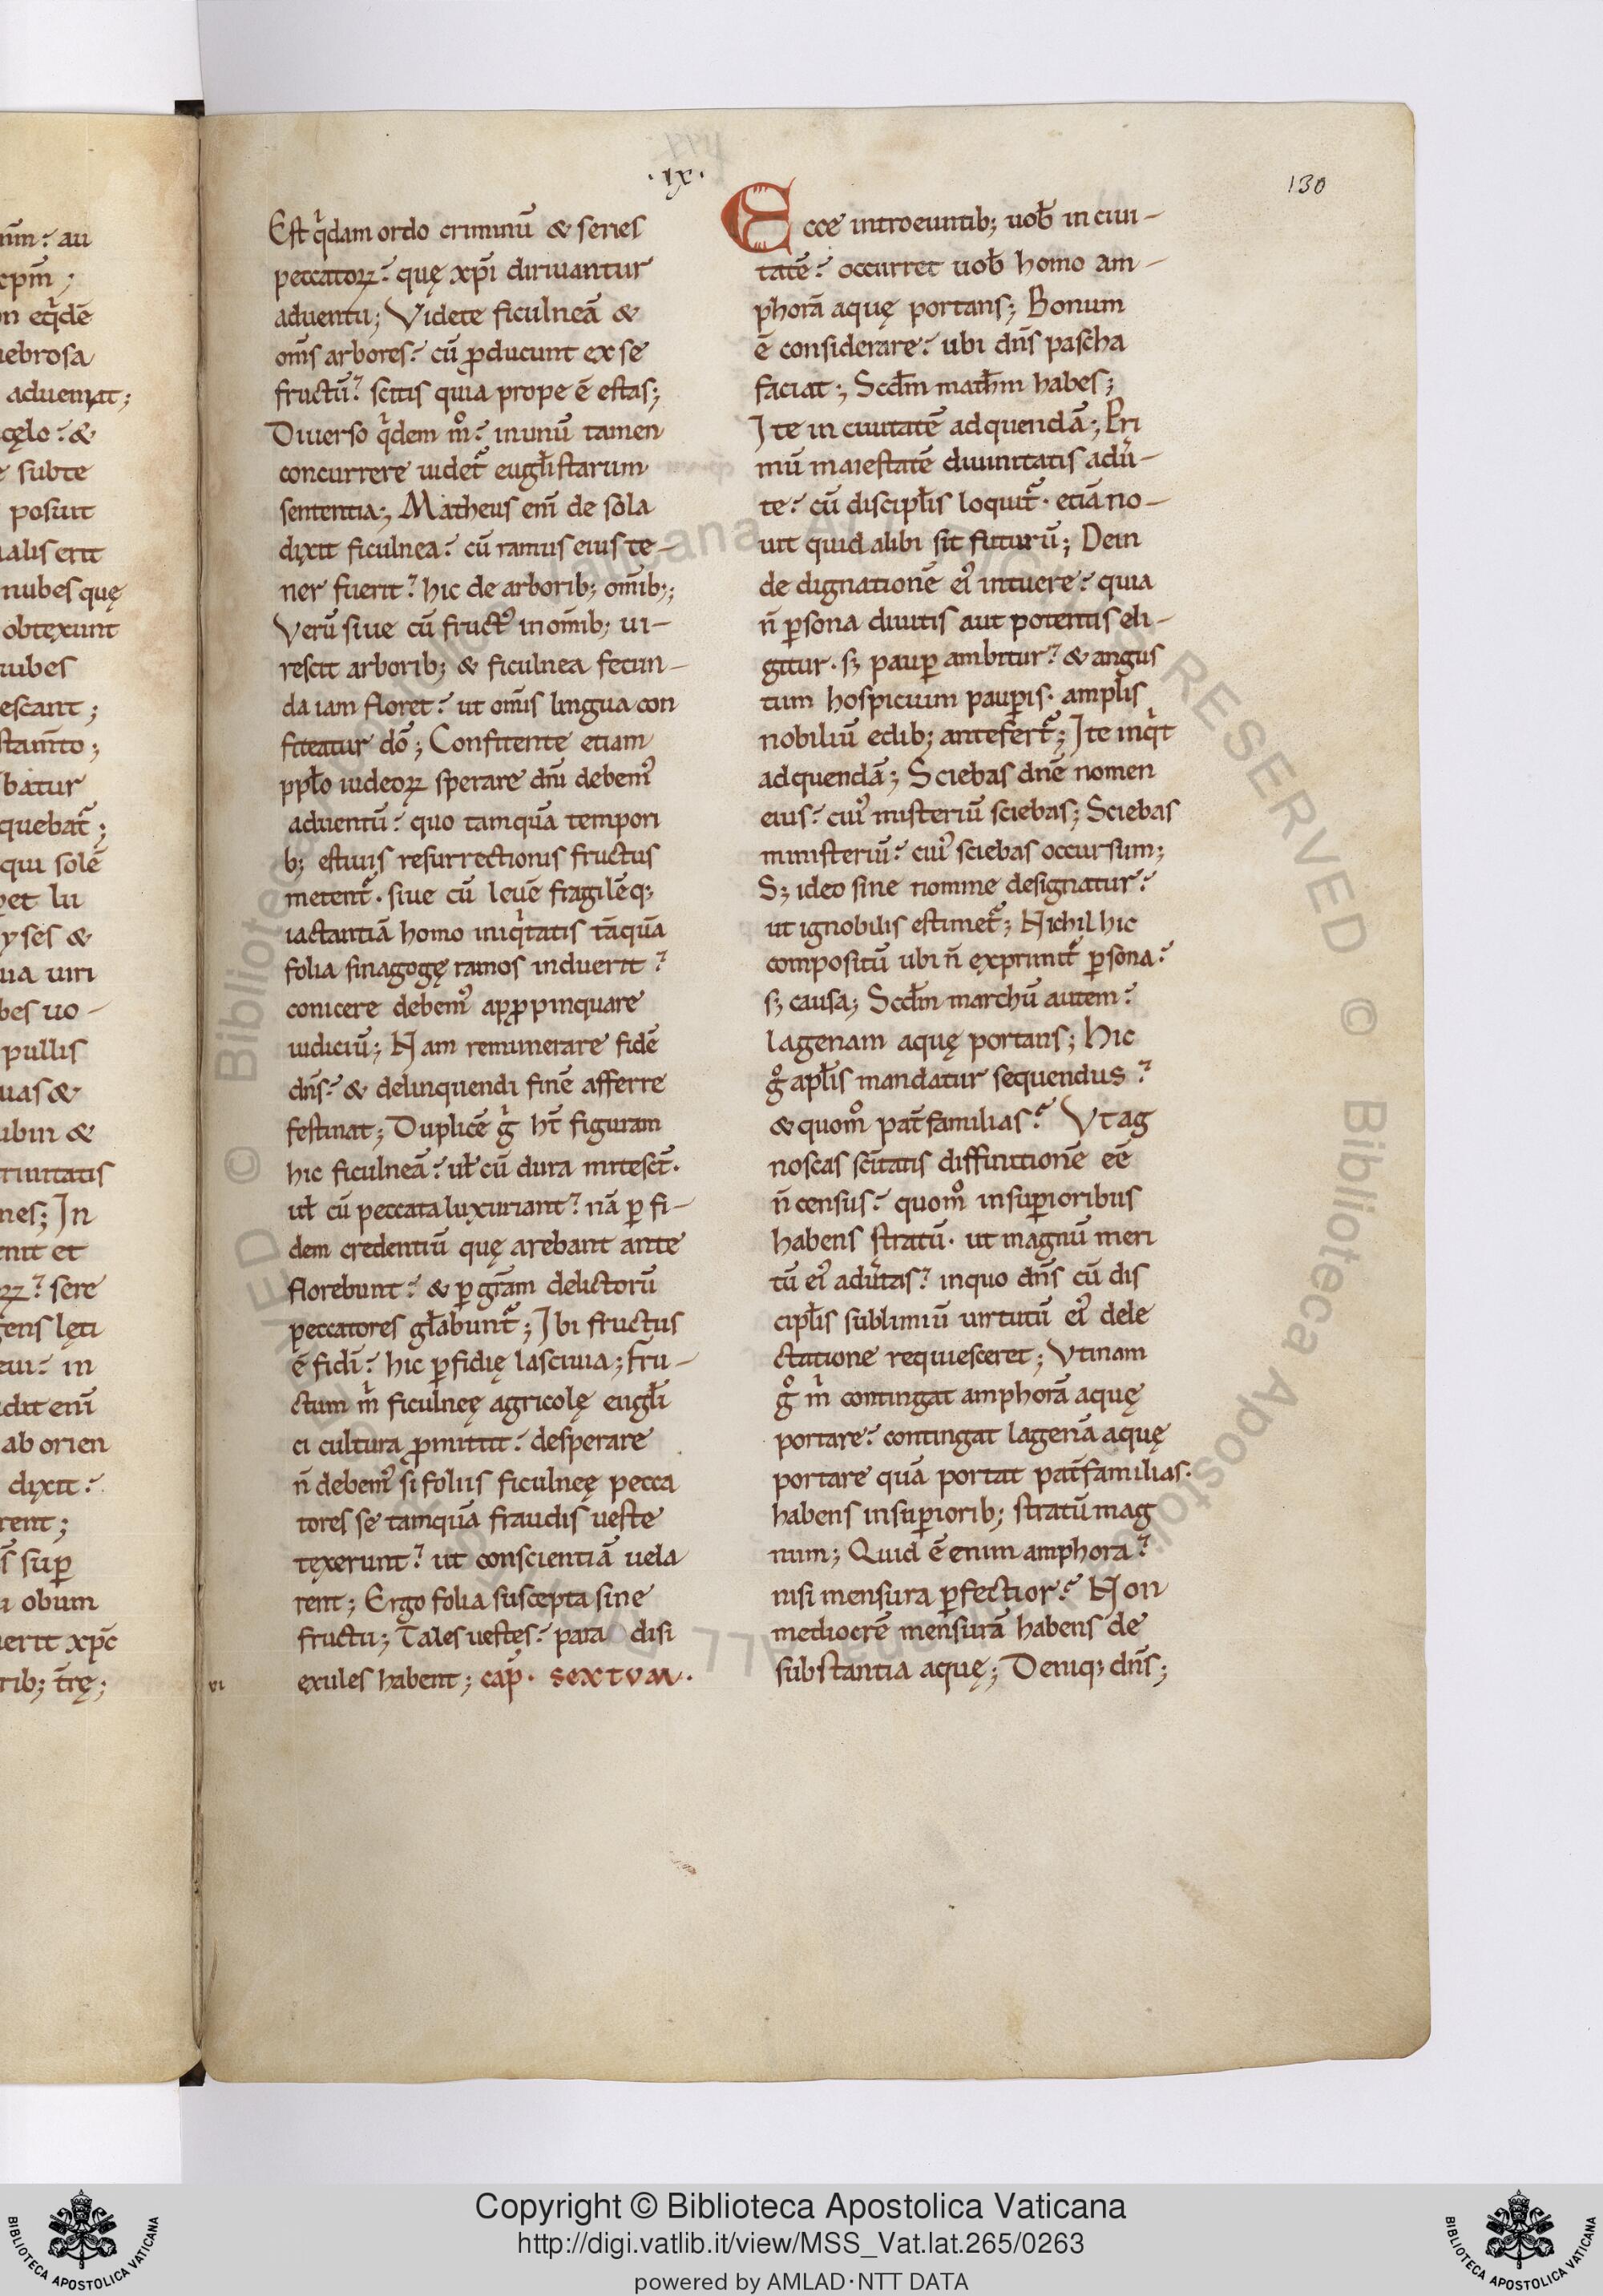 nm̄: au
epm̄;
n eq̇dē
nebrosa
aduemat;
cęlo: &
e subte
posuit
ialis erit
nubes quę
obtexunt
nubes
escant;
stam̄to;
batur
quebat᷑;
qui solē
et lu
yses &
ua uiri
bes uo-
pullis
uas &
ubin &
tiuitatis
nes; In
enit et
sere
gens lęti
eui: in
dit enī
ab orien
dixit:
rent;
sup̱
u obum
uerit xp̄c
rib; tr̄ę;
vi
.ix.
130
Est q̇dam ordo criminū & series
peccatoꝝ: quę xp̄i diriuantur
aduentu; Videte ficulneā &
om̄s arbores: cū ꝓducunt ex se
fructū: scitis quia prope ē estas;
Diuerso q̇dem m̊: in unū tamen
concurrere uidet᷑ eugl̄istarum
sententia; Matheus enī de sola
dixit ficulnea: cū ramus eius te-
ner fuerit: hic de arborib; om̄ib;;
Verū siue cū fruct᷒ in om̄ib; ui-
rescit arborib; & ficulnea fecun-
da iam floret: ut om̄is lingua con
fiteatur dō; Confitente etiam
ppl̄o iudeoꝝ sperare dn̄i debem᷒
aduentū: quo tamquā tempori
b; estiuis resurrectionis fructus
metent᷑. siue cū leuē fragilēq;
iactantiā homo iniq̇tatis tāquā
folia sinagogę ramos induerit:
conicere debem᷒ apꝓpinquare
iudiciū; Nam remunerare fidē
dn̄s: & delinquendi finē afferre
festinat; Duplicē g̍ ht̄ figuram
hic ficulneā: ul̄ cū dura mitesct̄.
ul̄ cū peccata luxuriant: nā ꝑ fi-
dem credentiū quę arebant ante
florebunt: & ꝑ gr̄am delictorū
peccatores gl̄abunt᷑; Ibi fructus
ē fidī: hic ꝑfidię lasciuia; Fru-
ctum m̍ ficulneę agricolę eugl̄i
ci cultura ꝓmittit: desperare
n̄ debem᷒ si foliis ficulneę pecca
tores se tamquā fraudis ueste
texerunt: ut conscientiā uela
rent; Ergo folia suscepta sine
fructu; Tales uestes: para disi
exules habent; cap̄. sextvm.
Ecce introeuntib; uob̄ in ciui-
tatē: occurret uob̄ homo am-
phorā aquę portans; Bonum
ē considerare: ubi dn̄s pascha
faciat; Scd̄m math̄m habes;
Ite in ciuitatē ad quendā; Pri
mū maiestatē diuinitatis adu̍-
te: cū discipl̄is loquit᷑. etiā no-
uit quid alibi sit futurū; Dein
de dignationē ei᷒ intuere: quia
n̄ ꝑsona diuitis aut potentis eli-
gitur. s; pauꝑ ambitur: & angus
tum hospicium pauꝑis. amplis
nobiliū edib; antefert᷑; Ite inq̇t
ad quendā; Sciebas dn̄e nomen
eius: cui᷒ misteriū sciebas; Sciebas
ministeriū: cui᷒ sciebas occursum;
S; ideo sine nomine designatur:
ut ignobilis estimet᷑; Nichil hic
compositū ubi n̄ exprimit᷑ ꝑsona:
s; causa; Scd̄m marchū autem:
lagenam aquę portans; Hic
g̊ apl̄is mandatur sequendus:
& quom̊ pat̄familias: Vt ag
noscas sc̄itatis diffinitionē eē
n̄ census: quom̊ in suꝑioribus
habens stratū. ut magnū meri
tū ei᷒ adu̍tas: in quo dn̄s cū dis
cipl̄is sublimiū uirtutū ei᷒ dele
ctatione requiesceret; Vtinam
g̊ m̍ contingat amphorā aquę
portare: contingat lagenā aquę
portare quā portat pat̄familias.
habens in suꝑiorib; stratū mag
num; Quid ē enim amphora:
nisi mensura ꝑfectior: Non
mediocrē mensurā habens de
substantia aquę; Deniq; dn̄s;
Copyright © Biblioteca Apostolica Vaticana
http://digi.vatlib.it/view/MSS_Vat.lat.265/0263
powered by AMLAD·NTT DATA
BIBLIOTECA APOSTOLICA VATICANA
BIBLIOTECA APOSTOLICA VATICANA